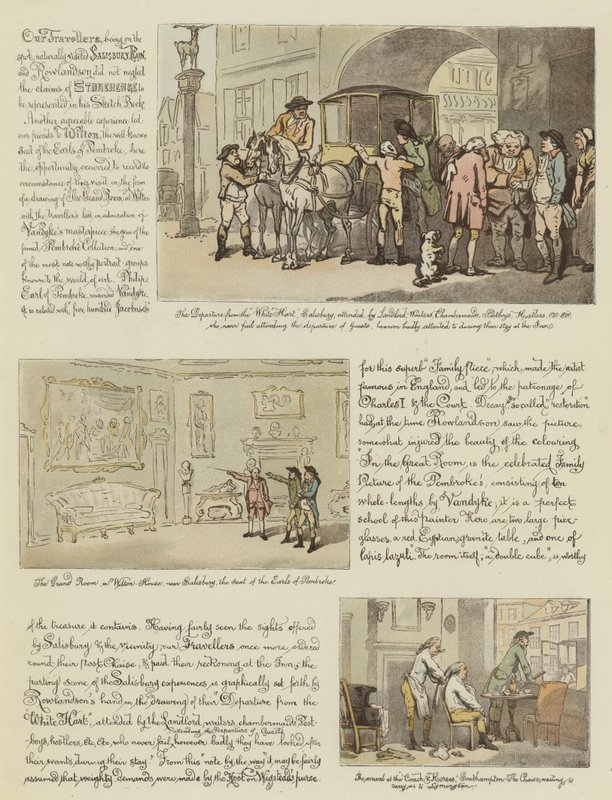 Our Travellers, being on the
spot, naturally visited SALISBURY PLAIN,
and Rowlandson did not neglect
the claims of STONEHENGE to
be represented in his Sketch Book.
Another agreeable experience led
our friends to Wilton, the well-known
Seat of the Earls of Pembroke, here
the opportunity occurred to record the
circumstance of this visit in the form
of a drawing of The Grand Room at Wilton
with the travellers lost in admiration of
Vandyke's masterpiece the gem of the
famed Pembroke Collection, and one
of the most noteworthy portrait-groups
known to the world of art. Philip,
Earl of Pembroke, rewarded Vandyke,
it is related with "five hundred Jacobuss's
The Departure from the "White Hart", Salisbury, attended by Landlord, Waiters, Chambermaids, Postboys, Hostlers, etc etc
who never fail attending the departure of Guests, however badly attended to during their stay at the Inn.
for this superb "Family Piece", which made the artist
famous in England, and led to the patronage of
Charles I & the Court. Decay, & so called, "restoration"
had, at the time Rowlandson saw the picture,
somewhat injured the beauty of the colouring.
"In the Great Room is the celebrated Family
Picture of the Pembroke's, consisting of ten
whole-lengths by Vandyke; it is a perfect
school of this painter. Here are two large pier-
glasses, a red Egyptian granite table, and one of
lapis-lazuli. The room itself, "a double cube", is worthy
The Grand Room in Wilton House, near Salisbury, the Seat of the Earls of Pembroke.
of the treasure it contains. Having fairly seen the sights offered
by Salisbury & the vicinity, our Travellers once more ordered
round their Post Chaise, & paid their reckoning at the Inn, the
parting scene of the Salisbury experiences is graphically set forth by
Rowlandson's hand in the drawing of their "Departure from the
"White Hart", attended by the Landlord, waiters, chambermaids, Post-
attending the Departure of Guests
boys, hostlers, etc, etc, who never fail, however badly they have looked after
their wants during their stay." From this note by the way it may be fairly
assumed that weighty demands were made by the Host on Wigstead's purse.
The arrival at the "Coach & Horses", Southampton. The Chaise, waiting, to
carry us to Lymington.